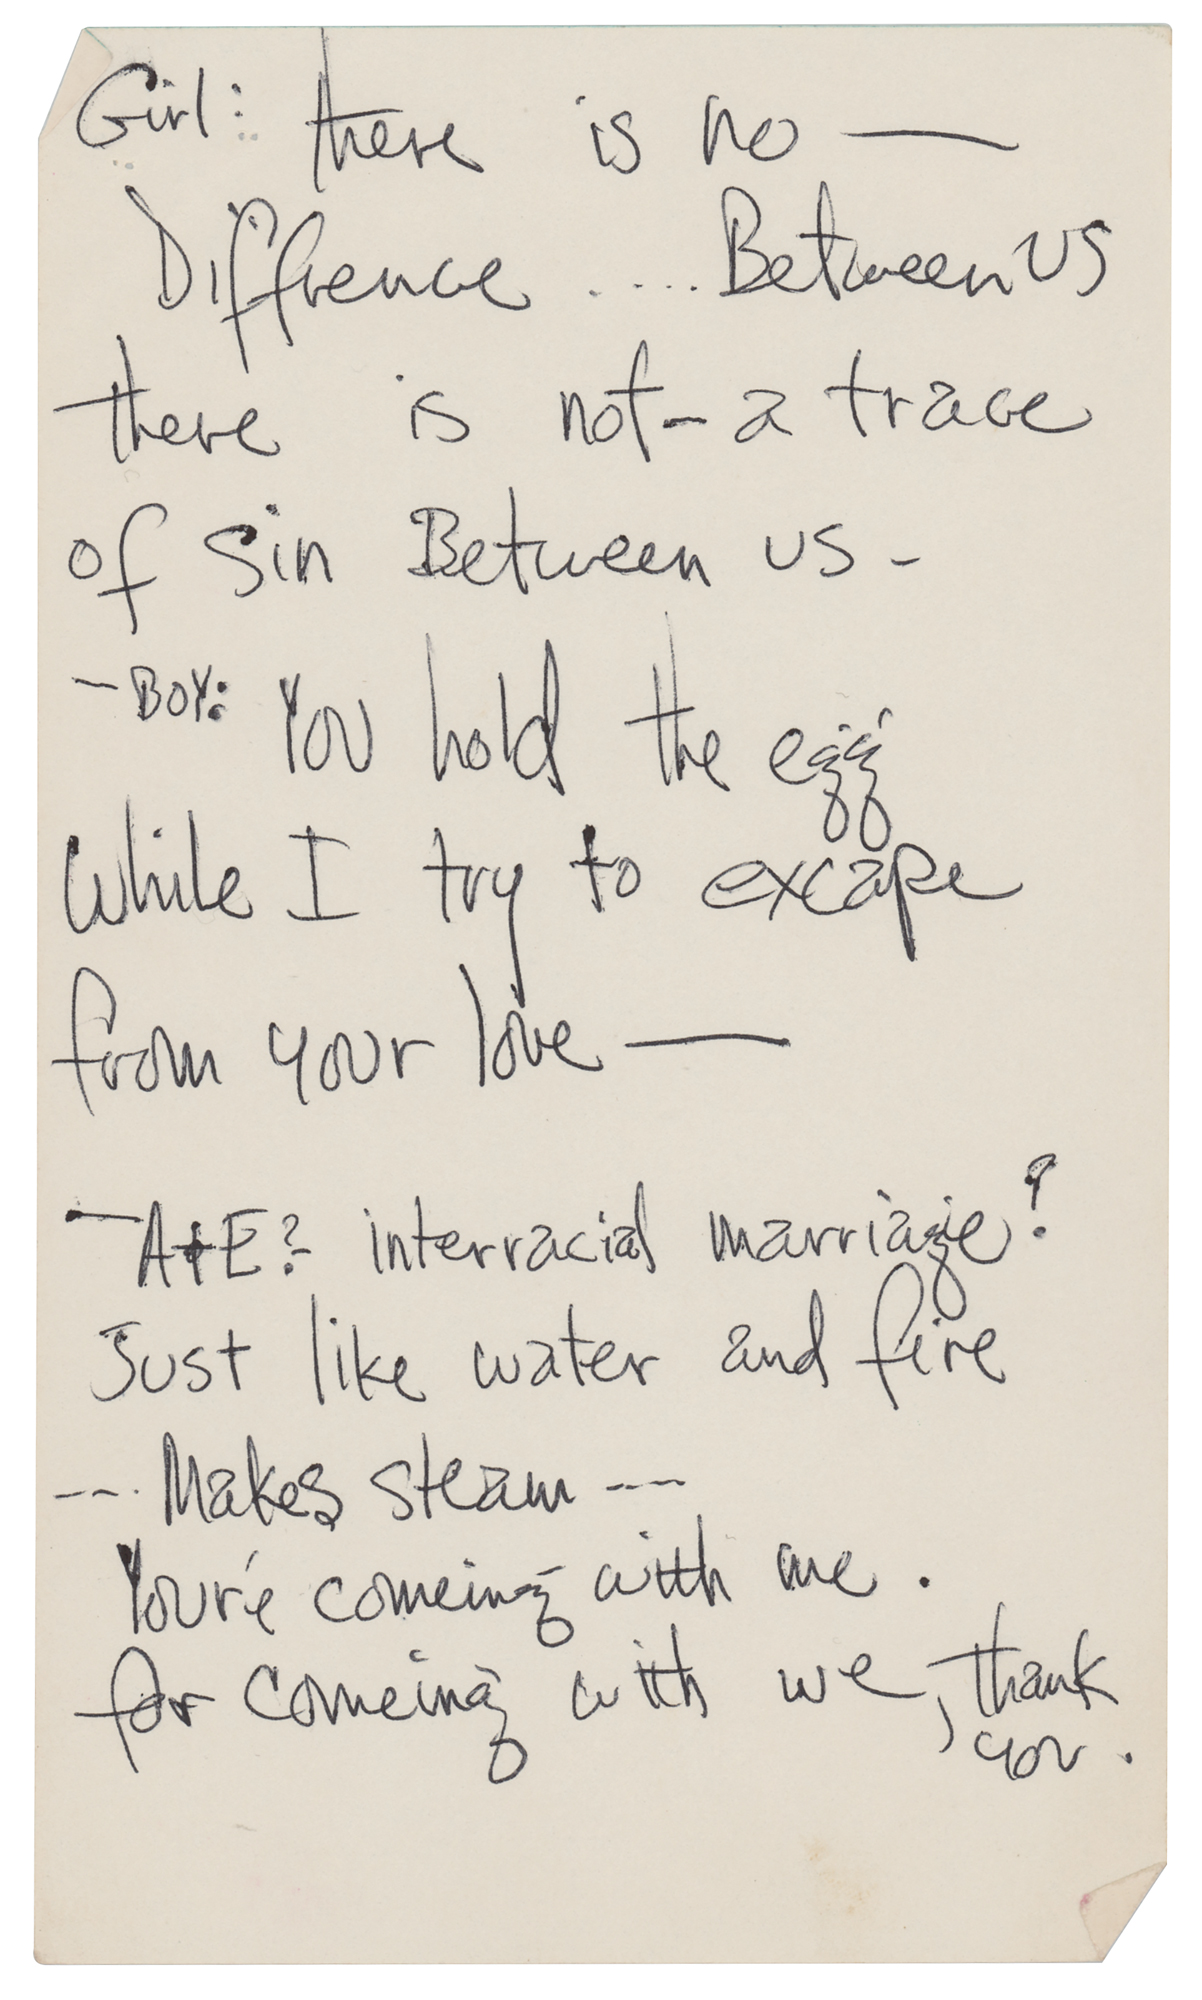 Girl: there is no —
Diffrence ..... Between us
there is not - a trace
of sin Between us -
- BOY: You hold the egg
While I try to excape
from your love —
- A+E? interracial marriage?
Just like water and fire
--- Makes steam ---
Your'e comeing with me.
for comeing with we, thank
you.